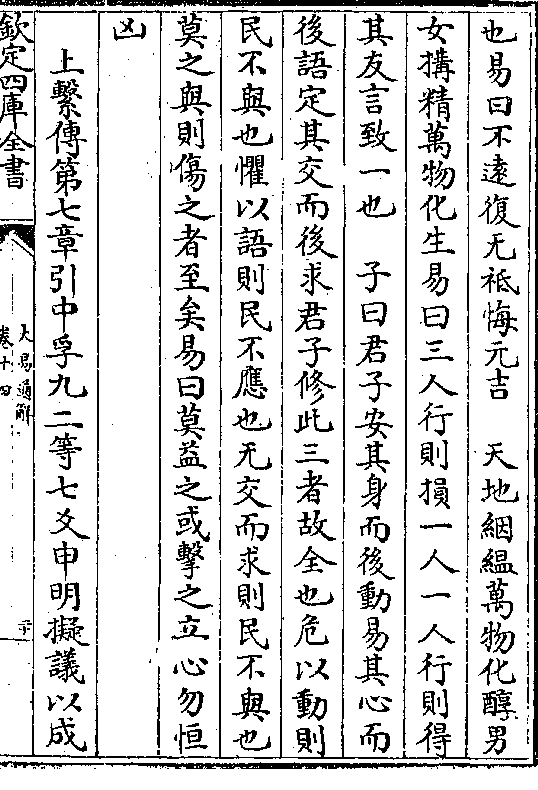 也易曰不遠復无祗悔元吉　天地絪緼萬物化醇男
女搆精萬物化生易曰三人行則損一人一人行則得
其友言致一也　子曰君子安其身而後動易其心而
後語定其交而後求君子修此三者故全也危以動則
民不與也懼以語則民不應也无交而求則民不與也
莫之與則傷之者至矣易曰莫益之或擊之立心勿恒
凶
上繫傳第七章引中孚九二等七爻申明擬議以成
欽定四庫全書
大易通解
卷十四